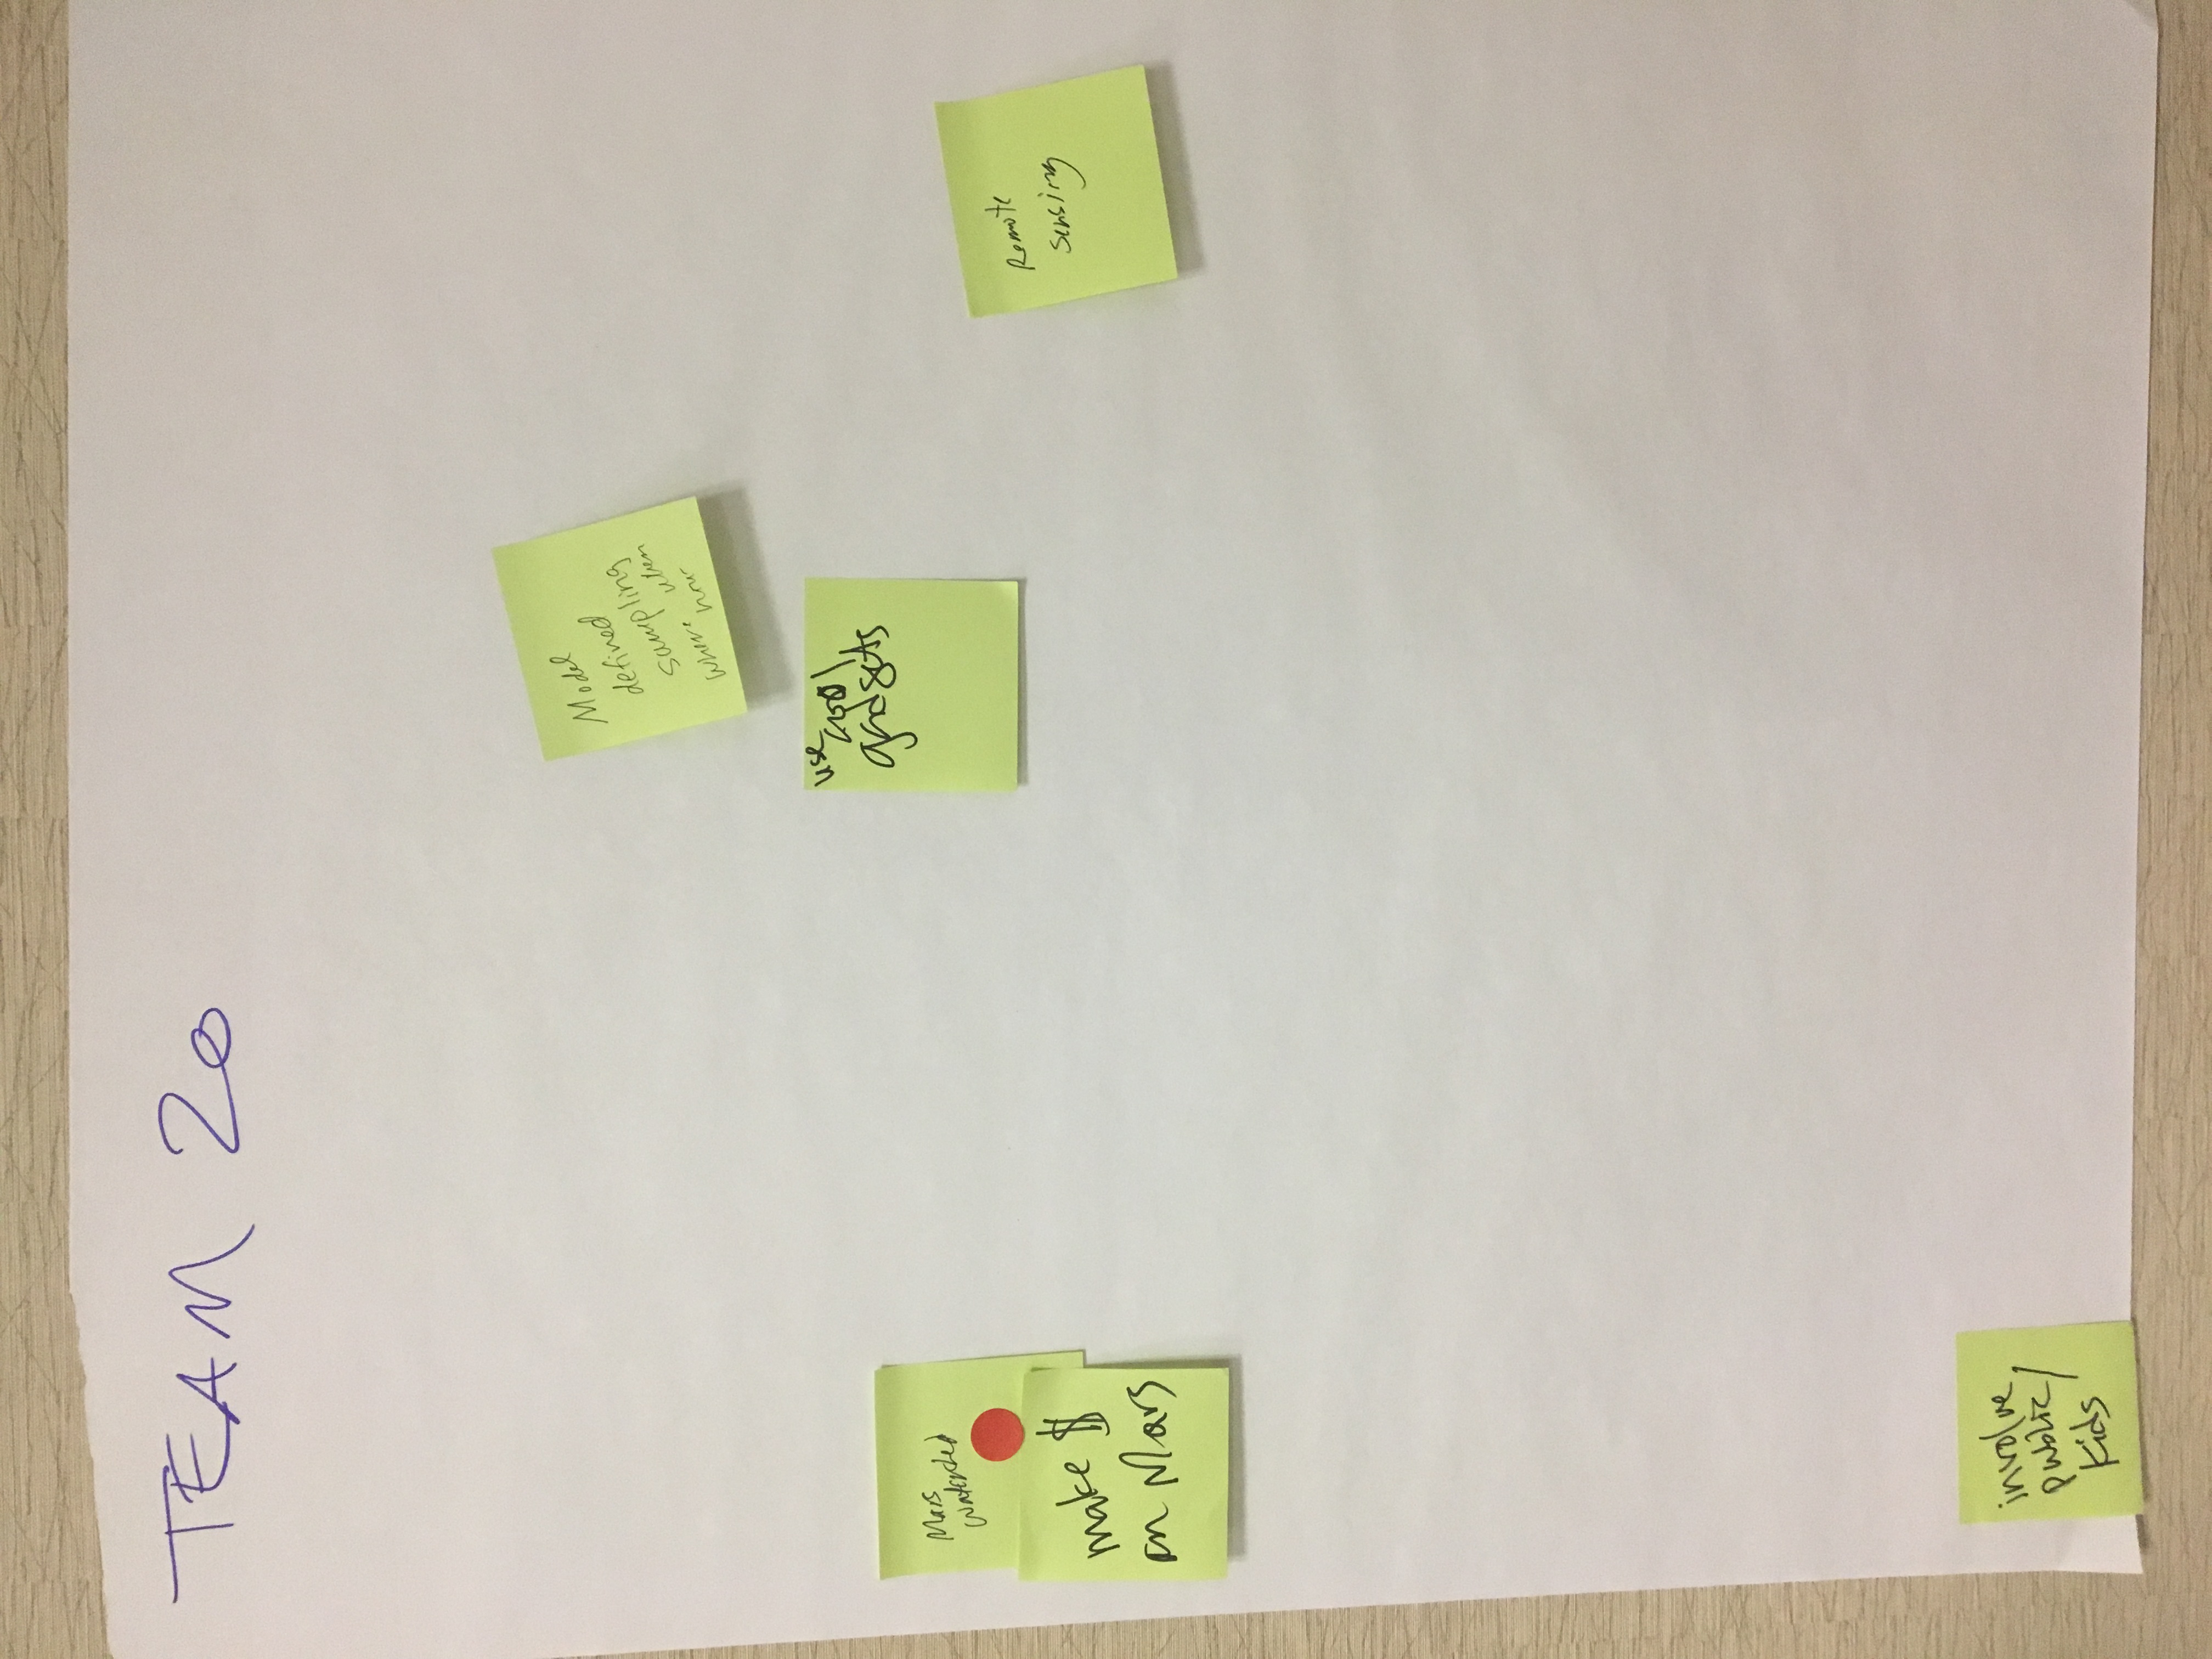 TEAM 20
Model
defined
sampling
where when
how
use cool
gadgets
Mars
Watershed
make $
on Mars
Remote
sensing
involve
public/
kids